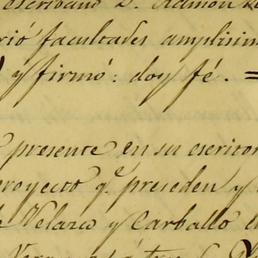 escribano D. Ramon
rió facultades amplisim
y firmó: doy fé. =
presente en su escritor
royecto q.e preceden y
e Velazco y Carballo